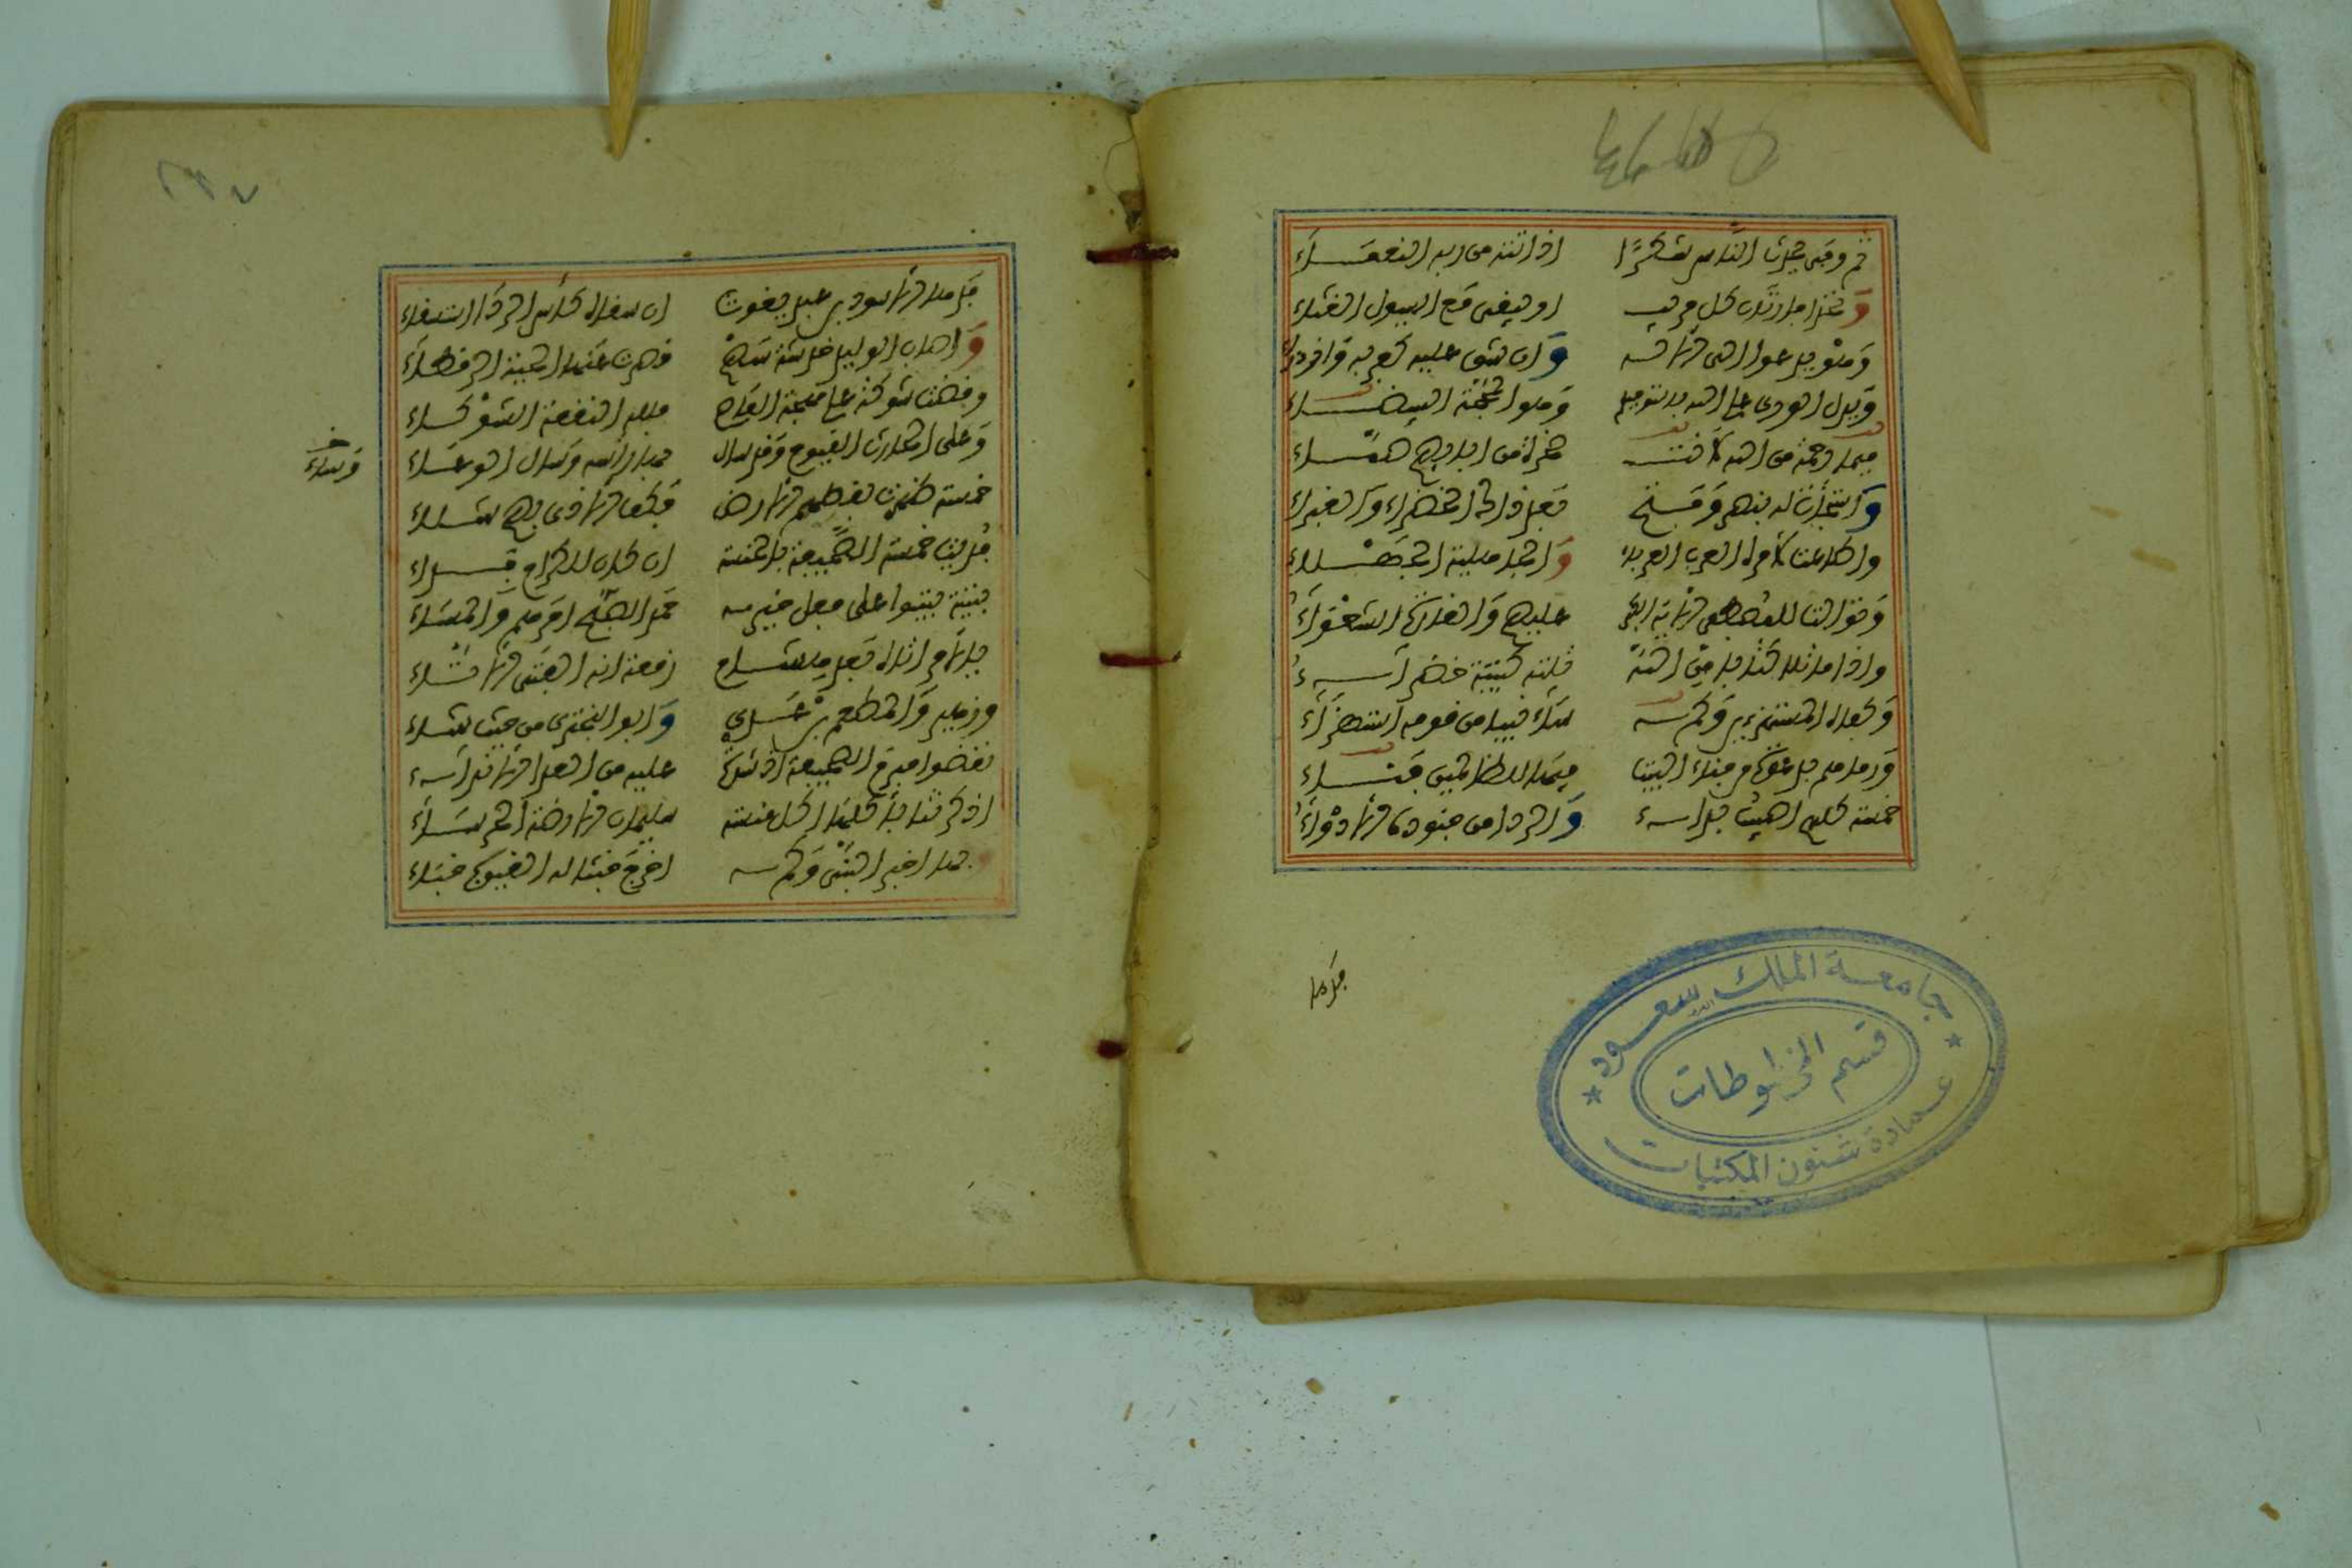 ثم وفى يحدث الناس شكرًا اذ اتته من ربه النعماء
وتحدا فارتاب كل مريب او يبقى مع السيول الغثاء
وهو يدعو الى الاله وان شق عليه كفر به وازدراء
ويدل الورى على الله بالتوحيد وهو المحجة البيضاء
فبما رحمة من الله لانت صخرة من ابائهم صماء
واستجابت له بنصر وفتح بعد ذاك الخضراء والغبراء
واطاعت لامره العرب العرباء والجاهلية الجهلاء
وتوالت للمصطفى الاية الكبرى عليهم والغارة الشعواء
واذا ما تلا كتابا من الله تلته كتيبة خضراء
وكفاه المستهزءين وكم ساء نبيا من قومه استهزاء
ورماهم بدعوة من فناء البيت فيها للظالمين فناء
خمسة كلهم اصيبوا بداء والردا من جنوده الادواء
فدها
جامعة الملك سعود
قسم المخطوطات
عمادة شئون المكتبات
فدها الاسود بن عبد يغوث ان سقاه كأس الردا استسقاء
واصاب الوليد خدشة سهم قصرت عنها الحية الرقطاء
وقضت شوكة على مهجة العاص فلله النقعة الشوكاء
وعلى الحارث القيوح وقد سال بها رأسه وسال الوعاء
وساء
خمسة طهرت بقطعهم الارض فكف الاذى بهم شلاء
فديت خمسة الصحيفة بالخمسة ان كان للكرام فداء
فتية بيتوا على فعل خير حمد الصبح امرهم والمساء
يا لامر اتاه بعد هشام زمعة انه الفتى الاتاء
وزهير والمطعم بن عدي وابو البختري من حيث شاء
نقضوا مبرم الصحيفة اذ شدت عليه من العدا الانداء
اذكرتنا باكلها اكل منساة سليمان الارضة الخرساء
وبها اخبر النبي وكم اخرج خبئا له الغيوب خباء